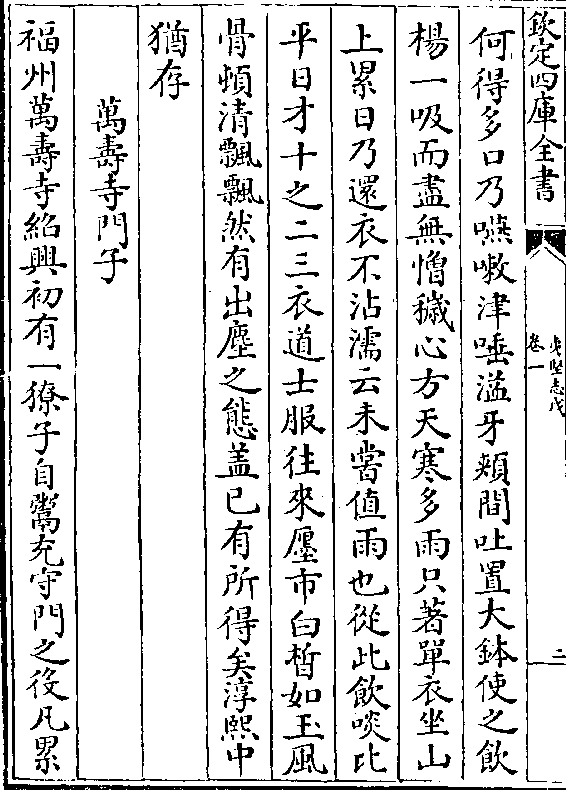 欽定四庫全書
夷堅志戊
卷一
二
何得多口乃嚥嗽津唾溢牙頰間吐置大鉢使之飲
楊一吸而盡無憎穢心方天寒多雨只著單衣坐山
上累日乃還衣不沾濡云未嘗值雨也從此飲啖比
平日才十之二三衣道士服往來廛市白皙如玉風
骨頓清飄飄然有出塵之態盖已有所得矣淳熙中
猶存
萬壽寺門子
福州萬壽寺紹興初有一獠子自鬻充守門之役凡累